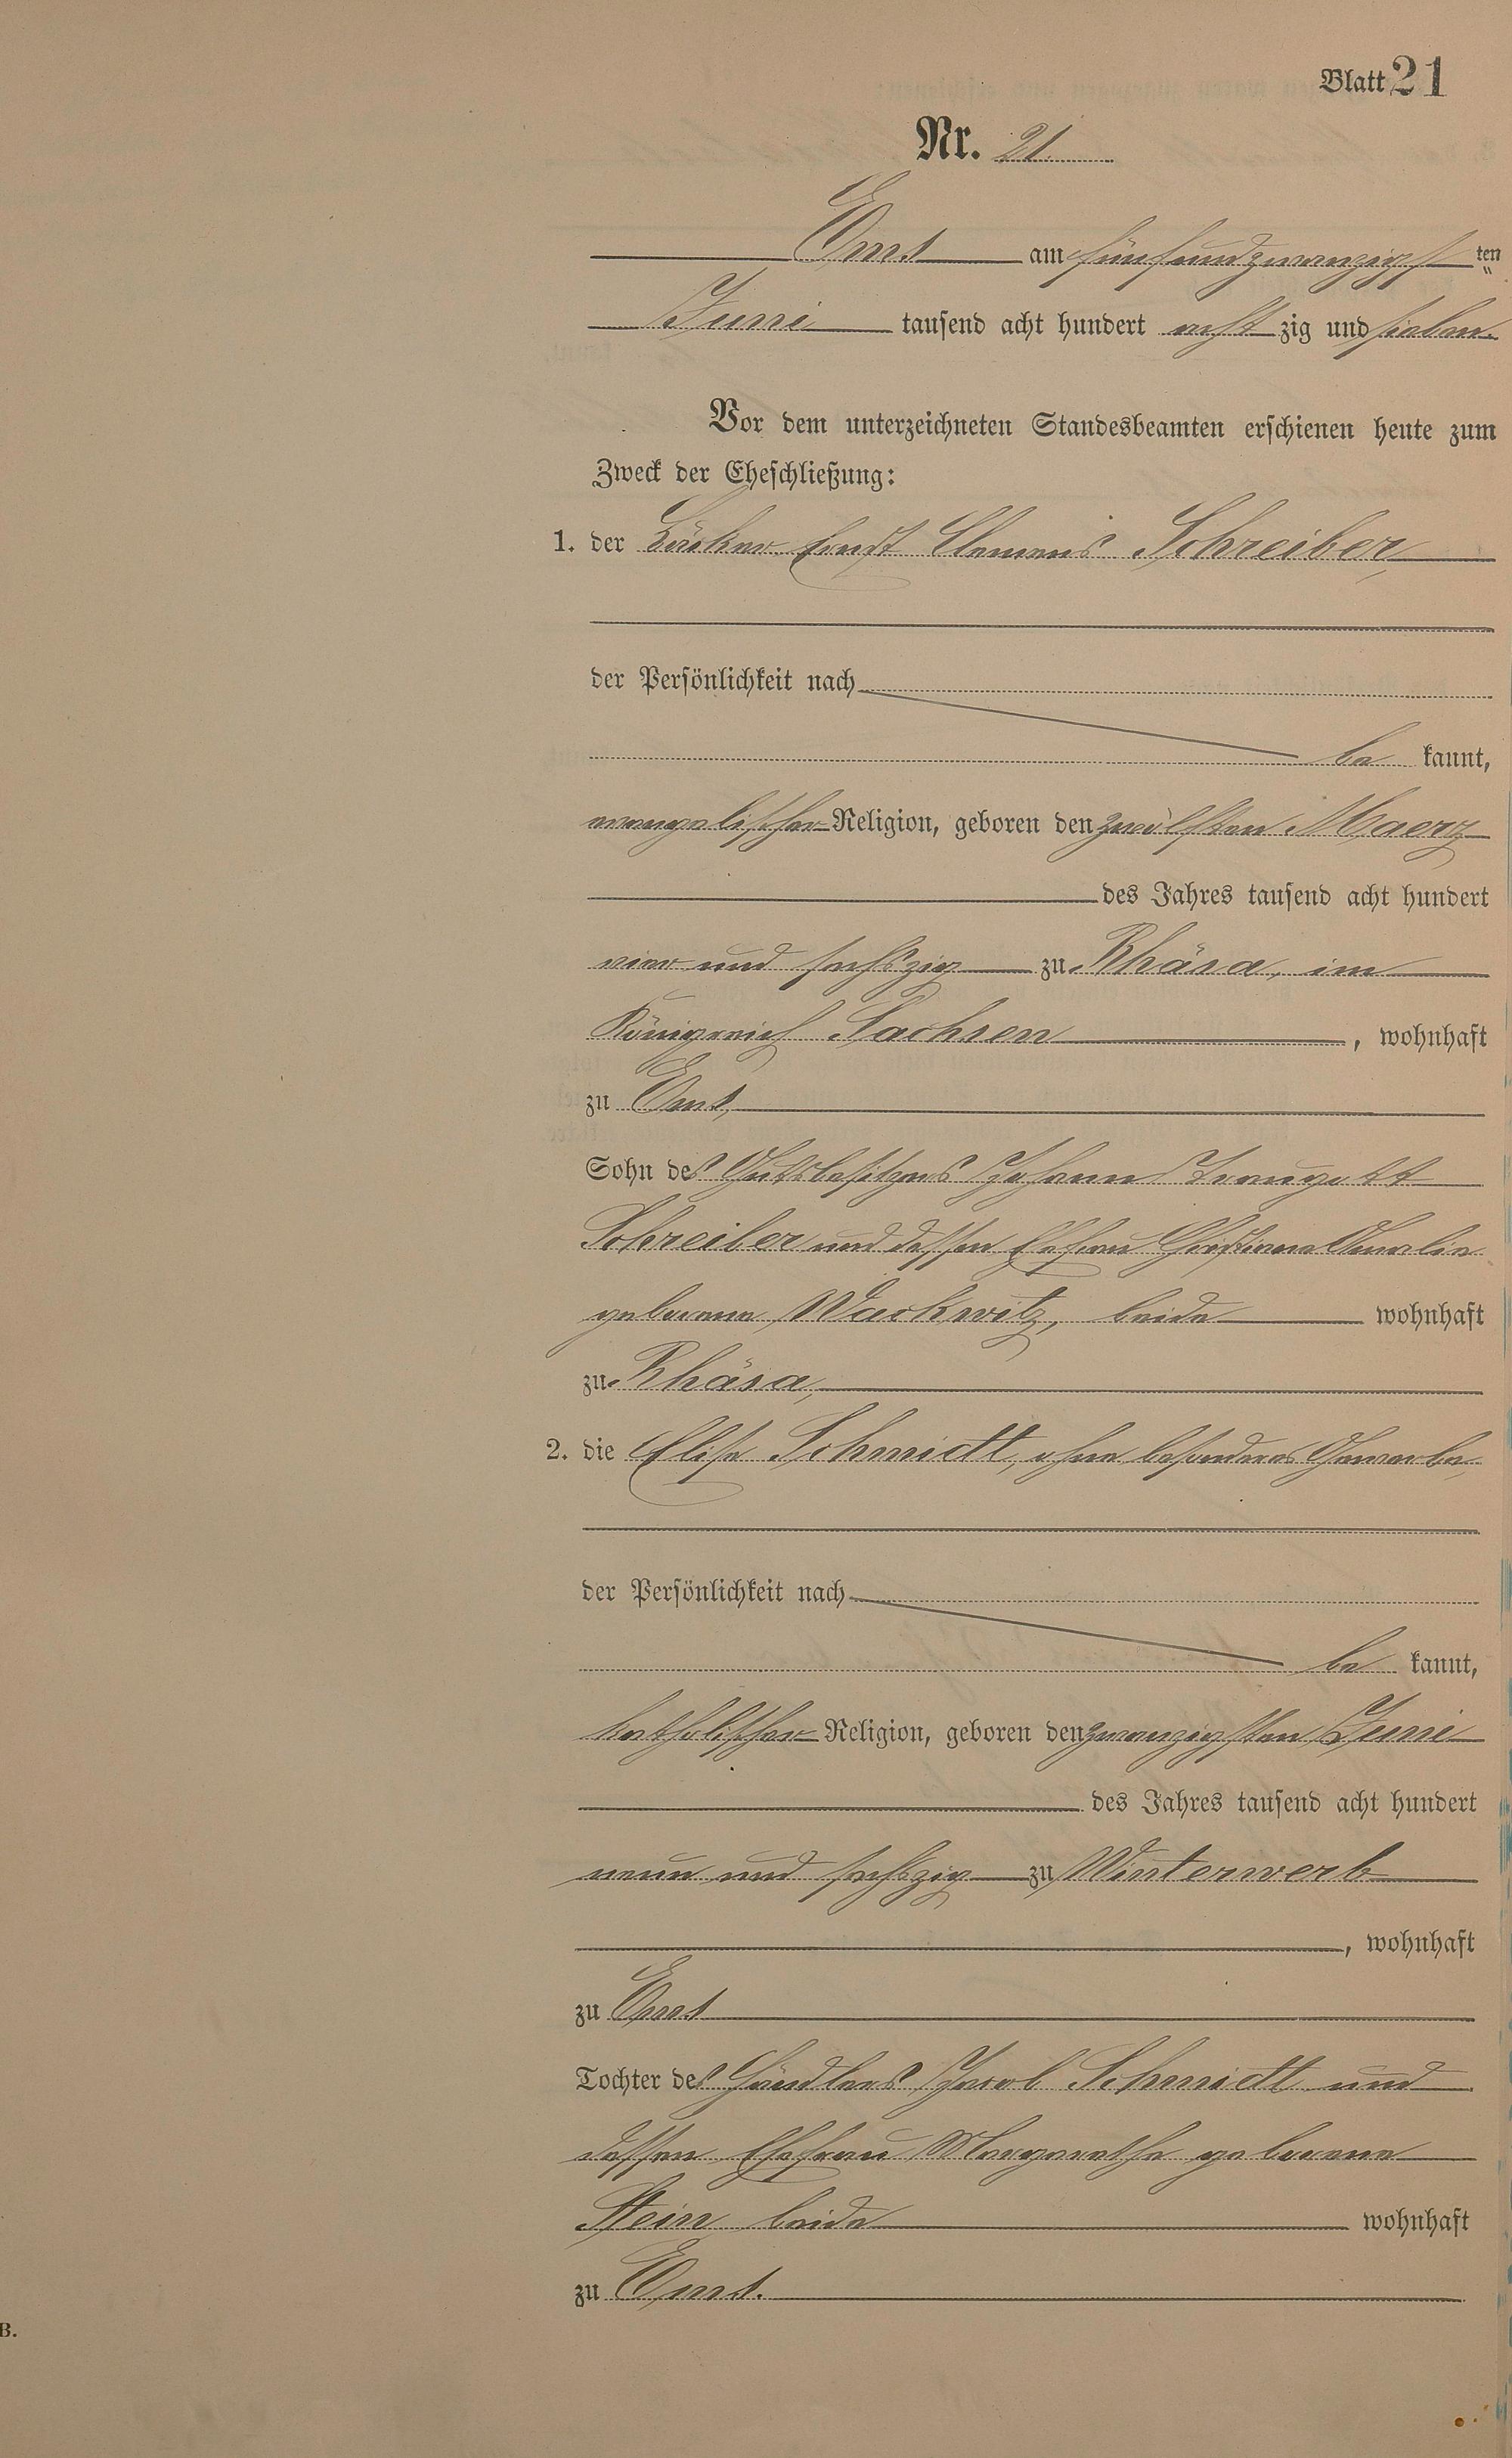 Blatt 21
Nr. 21.
Ems am fünfundzwanzigst ten
Juni tausend acht hundert acht zig und sieben.
Vor dem unterzeichneten Standesbeamten erschienen heute zum
Zweck der Eheschließung:
1. der Bäcker Ernst Clemens Schreiber,
der Persönlichkeit nach
be kannt,
evangelischer Religion, geboren den zwölften Maerz
des Jahres tausend acht hundert
vier und sechszig zu Rhäsa, im
Königreich Sachsen, wohnhaft
zu Ems,
Sohn des Gutsbesitzers Johann Traugott
Schreiber und dessen Ehefrau Christiane Amalie
geborene Wackwitz, beide wohnhaft
zu Rhäsa,
2. die Elise Schmidt, ohne besonderes Gewerbe,
der Persönlichkeit nach
be kannt,
katholischer Religion, geboren den zwanzigsten Juni
des Jahres tausend acht hundert
neun und sechszig zu Winterwerb
, wohnhaft
zu Ems
Tochter des Händlers Jacob Schmidt und
dessen Ehefrau Margarethe geborene
Stein beide wohnhaft
zu Ems.
B.